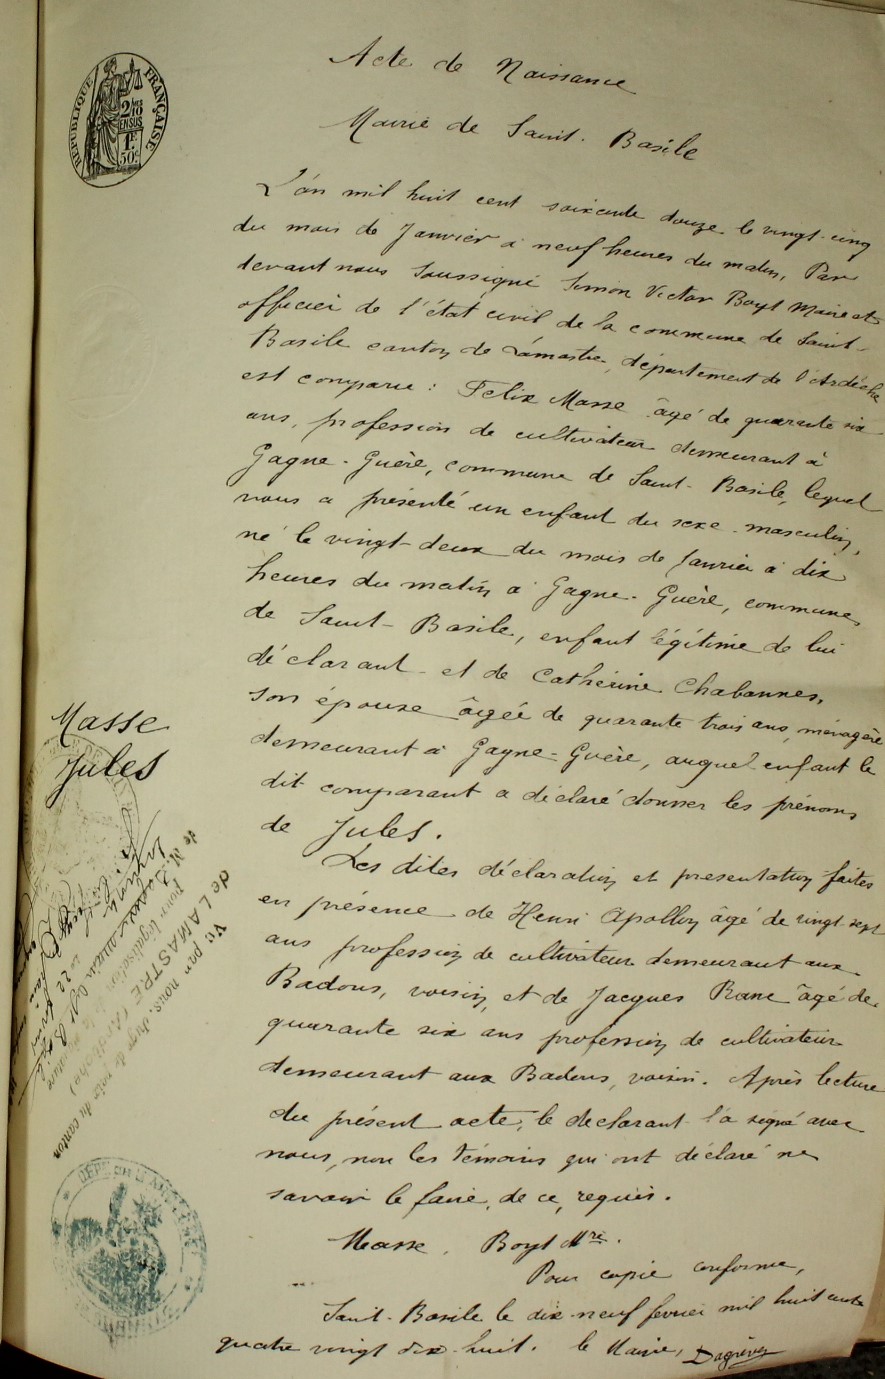 RÉPUBLIQUE FRANÇAISE
2/10 EN SUS
1F 50c
Acte de Naissance
Mairie de Saint-Basile
L'an mil huit cent soixante douze le vingt-cinq
du mois de Janvier à neuf heures du matin, Par
devant nous soussigné Simon Victor Boyt Maire et
officier de l'état civil de la commune de Saint-
Basile canton de Lamastre, département de l'Ardèche
est comparu : Felix Masse âgé de quarante six
ans, profession de cultivateur demeurant à
Gagne-Guère, commune de Saint-Basile, lequel
nous a présenté un enfant du sexe masculin,
né le vingt-deux du mois de Janvier à dix
heures du matin à Gagne-Guère, commune
de Saint-Basile, enfant légitime de lui
déclarant et de Catherine Chabannes,
son épouse âgée de quarante trois ans, ménagère
demeurant à Gagne-Guère, auquel enfant le
dit comparant a déclaré donner les prénoms
de Jules.
Masse
Jules
Les dites déclaration et presentation faites
en présence de Henri Apollon âgé de vingt sept
ans profession de cultivateur demeurant aux
Badous, voisin, et de Jacques Ranc âgé de
quarante six ans profession de cultivateur
demeurant aux Badous, voisin. Après lecture
du présent acte, le declarant l'a signé avec
nous, non les témoins qui ont déclaré ne
savoir le faire, de ce, requis.
Masse, Boyt Mre.
Pour copie conforme,
Saint-Basile le dix-neuf fevrier mil huit cent
quatre vingt dix-huit. le Maire,
Vu par nous, Juge de paix du canton
de LAMASTRE (Ardèche)
pour légalisation de la signature
de M.